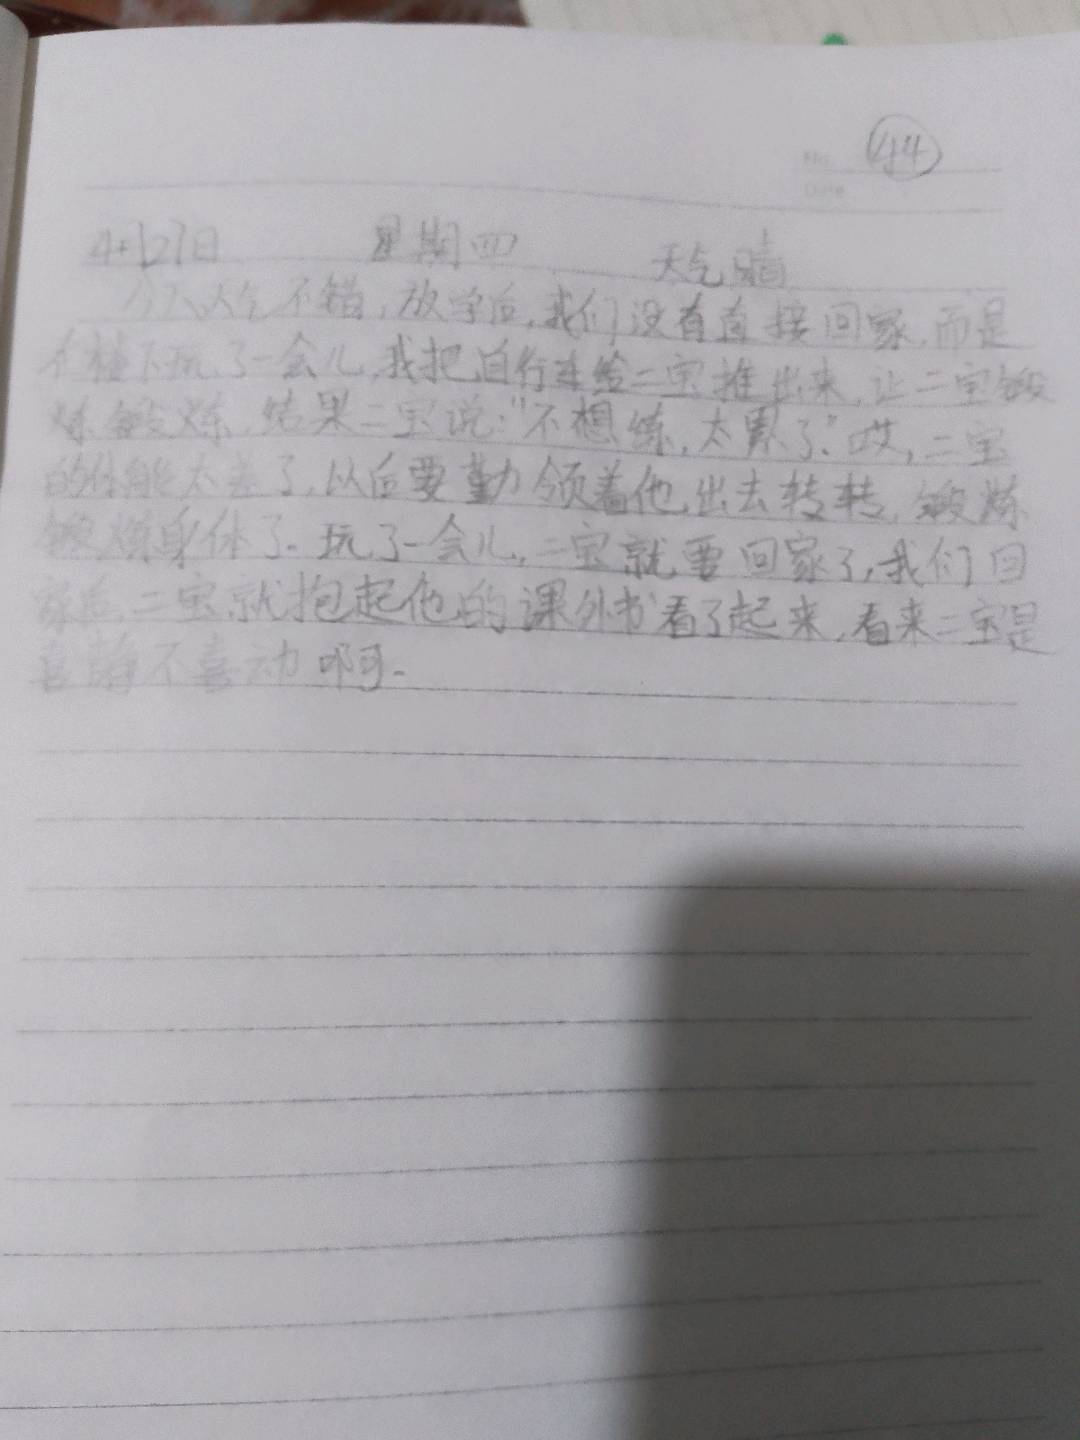 No. 44
Date
4月27日 星期四 天气晴
今天天气不错,放学后,我们没有直接回家,而是
在楼下玩了一会儿,我把自行车给二宝推出来,让二宝锻
炼锻炼,结果二宝说:"不想练,太累了。"哎,二宝
的体能太差了,以后要勤领着他出去转转,锻炼
锻炼身体了。玩了一会儿,二宝就要回家了,我们回
家后,二宝就抱起他的课外书看了起来,看来二宝是
喜静不喜动啊。